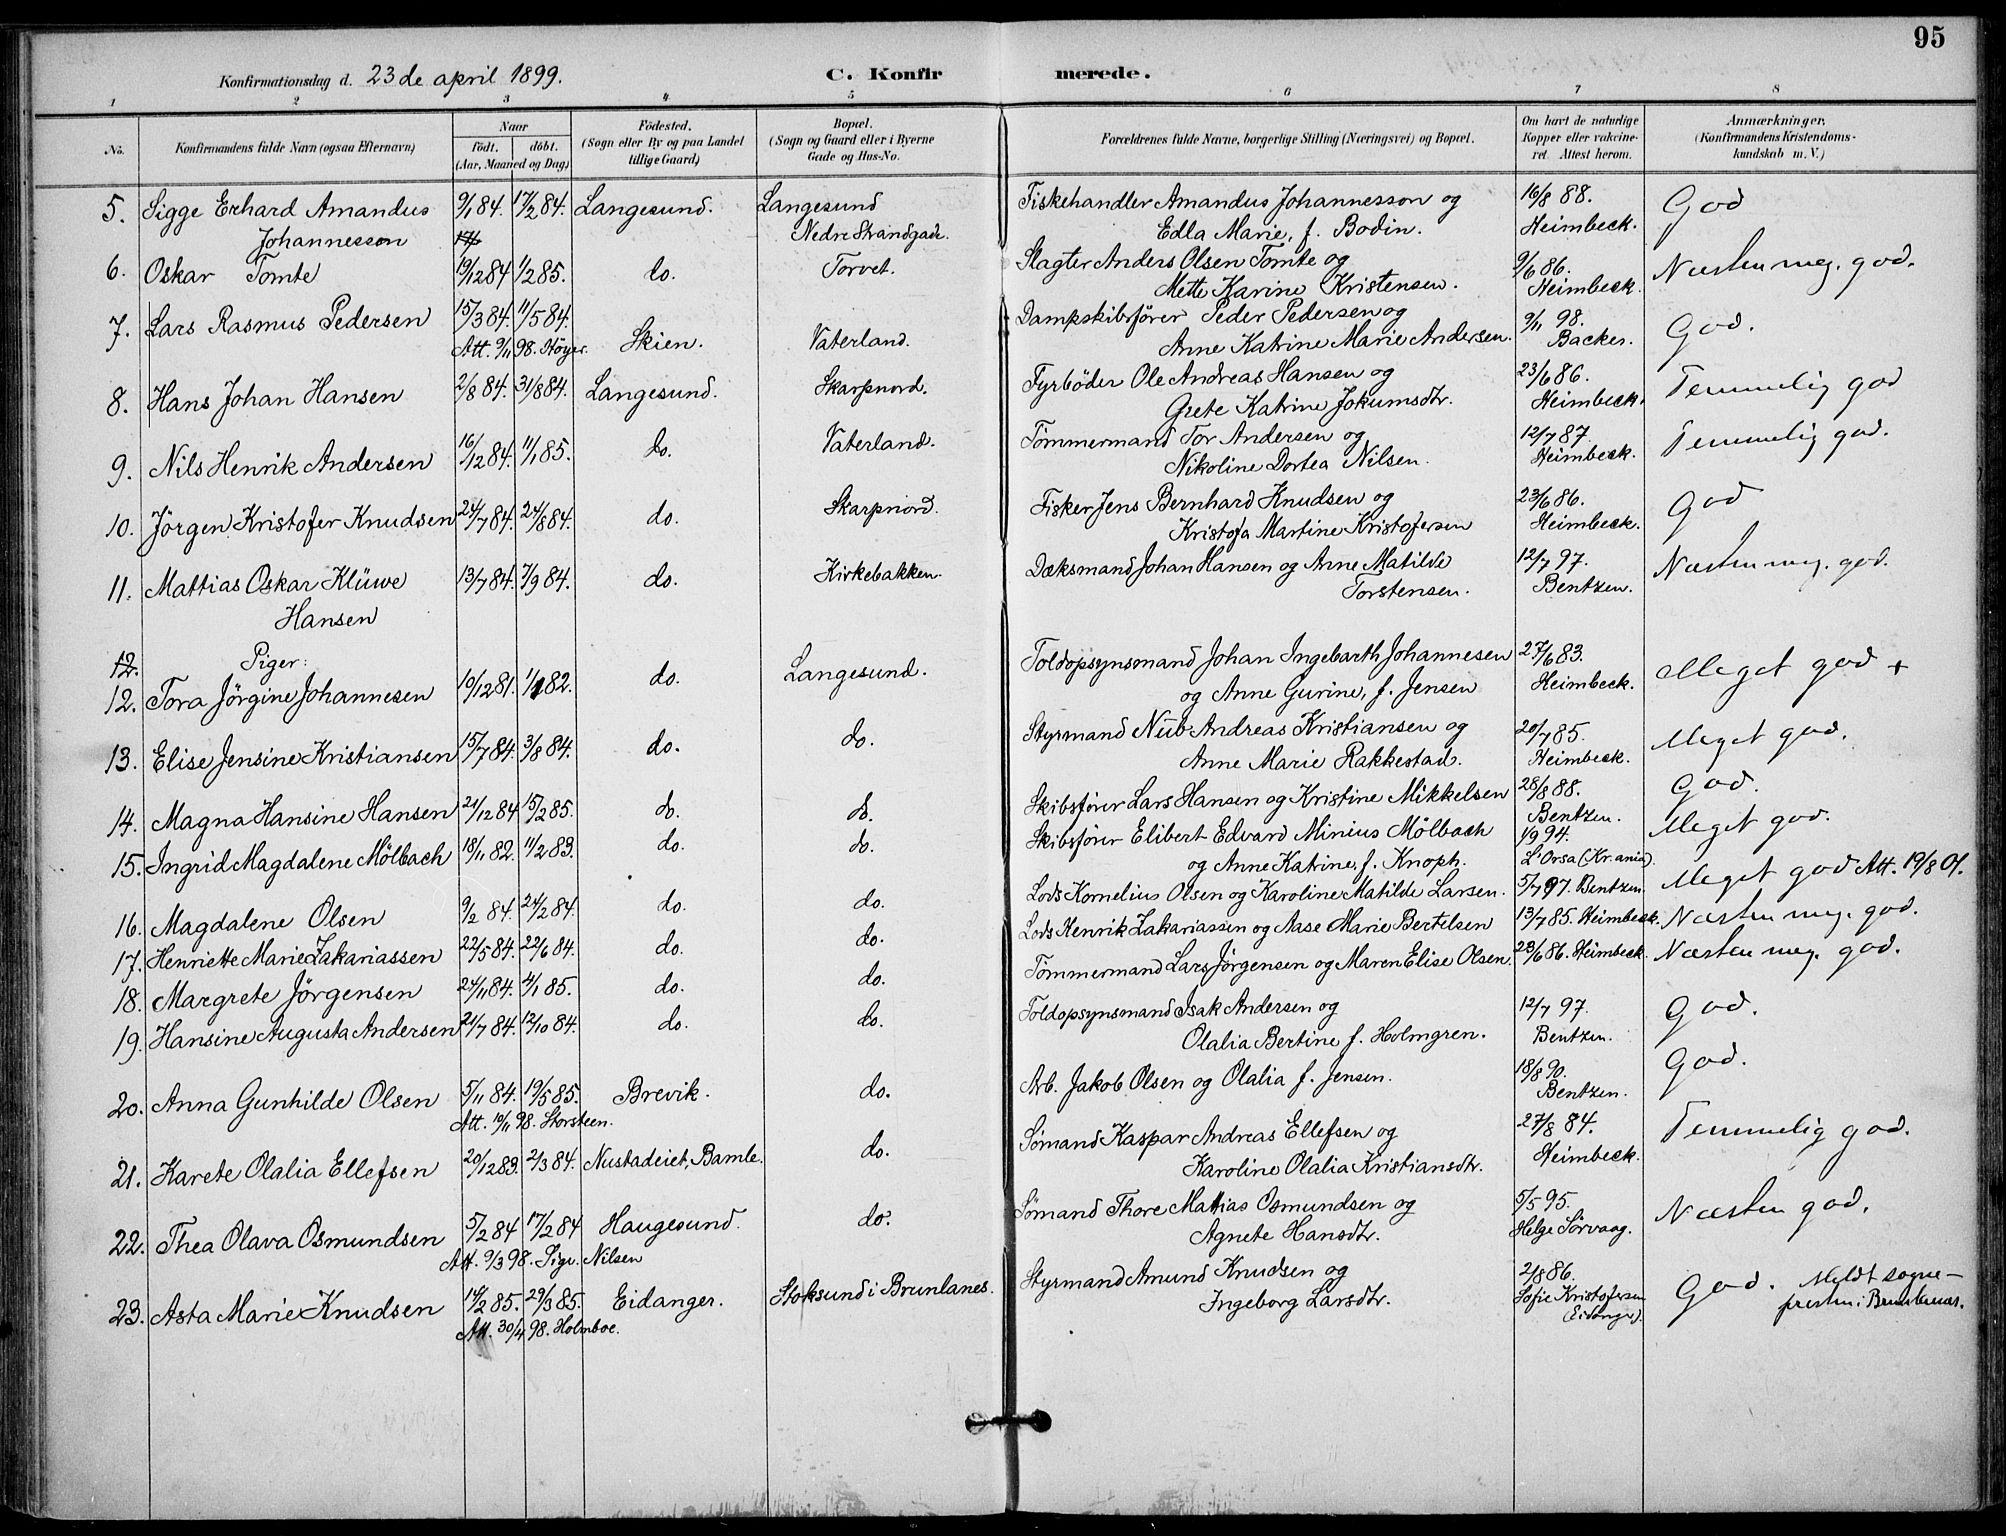 95
Konfirmationsdag d. 23de april 1899. C. Konfirmerede.
1 2 3 4 5 6 7 8
No. Konfirmandens fulde Navn (ogsaa Efternavn) Naar födt. döbt. (Aar, Maaned og Dag) Födested. (Sogn eller By og paa Landet tillige Gaard) Bopæl. (Sogn og Gaard eller i Byerne Gade og Hus-No. Forældrenes fulde Navne, borgerlige Stilling (Næringsvei) og Bopæl. Om havt de naturlige Kopper eller vakcineret. Attest herom. Anmærkninger, (Konfirmandens Kristendomskundskab m. V.)
5. Sigge Erhard Amandus 9/1 84. 17/2 84. Langesund. Langesund Fiskehandler Amandus Johannesson og 16/8 88. God
Johannesson Nedre Strandgade. Edla Marie, f. Bodin. Heimbeck.
6. Oskar Tomte 19/12 84 1/2 85. do. Torvet. Slagter Anders Olsen Tomte og 9/6 86. Næsten meg. god.
Mette Karine Kristensen. Heimbeck.
7. Lars Rasmus Pedersen 15/3 84. 11/5 84. Skien. Vaterland. Dampskibsförer Peder Pedersen og 9/11 98. God.
Att. 9/11 98. Höyer. Anne Katrine Marie Andersen. Backer.
8. Hans Johan Hansen 2/8 84. 31/8 84. Langesund. Skarpnord. Fyrböder Ole Andreas Hansen og 23/6 86. Temmelig god
Grete Katrine Jokumsdtr. Heimbeck.
9. Nils Henrik Andersen 16/12 84. 11/1 85. do. Vaterland. Tömmermand Tor Andersen og 12/7 87. Temmelig god.
Nikoline Dortea Nilsen. Heimbeck.
10. Jörgen Kristofer Knudsen 24/7 84. 24/8 84. do. Skarpnord. Fisker Jens Bernhard Knudsen og 23/6 86. God
Kristofa Martine Kristofersen Heimbeck.
11. Mattias Oskar Klüwe 13/7 84. 7/9 84. do. Kirkebakken. Dæksmand Johan Hansen og Anne Matilde 12/7 97. Næsten meg. god.
Hansen Torstensen. Bentzen.
12. Piger:
12. Tora Jörgine Johannesen 10/12 81. 1/1 82. do. Langesund. Toldopsynsmand Johan Ingebarth Johannesen 27/6 83. Meget god +
og Anne Gurine, f. Jensen Heimbeck.
13. Elise Jensine Kristiansen 15/7 84. 3/8 84. do. do. Styrmand Nub Andreas Kristiansen og 20/7 85. Meget god.
Anne Marie Rakkestad. Heimbeck.
14. Magna Hansine Hansen 21/12 84 15/2 85. do. do. Skibsförer Lars Hansen og Kristine Mikkelsen 28/8 88. God.
Bentzen.
15. Ingrid Magdalene Mölbach 18/11 82. 11/2 83. do. do. Skibsförer Elibert Edvard Minius Mölbach 94. Meget god.
og Anne Katrine, f. Knoph. L'Orsa (Kr.ania).
16. Magdalene Olsen 9/2 84. 24/2 84. do. do. Lods Kornelius Olsen og Karoline Matilde Larsen. 5/7 97. Bentzen. Meget god Att. 19/8 01.
17. Henriette Marie Zakariassen 22/5 84. 22/6 84. do. do. Lods Henrik Zakariassen og Aase Marie Bertelsen 13/7 85. Heimbeck. Næsten meg. god.
18. Margrete Jörgensen 24/11 84. 4/1 85. do. do. Tömmermand Lars Jörgensen og Maren Elise Olsen. 23/6 86. Heimbeck. Næsten meg. god.
19. Hansine Augusta Andersen 21/7 84. 12/10 84. do. do. Toldopsynsmand Isak Andersen og 12/7 97. God.
Olalia Bertine f. Holmgren. Bentzen.
20. Anna Gunhilde Olsen 5/11 84. 19/5 85. Brevik. do. Arb. Jakob Olsen og Olalia f. Jensen. 18/8 90. God.
Att. 10/11 98. Storsteen. Bentzen.
21. Karete Olalia Ellefsen 20/12 83. 2/3 84. Nustadeiet, Bamle. do. Sömand Kaspar Andreas Ellefsen og 27/8 84. Temmelig god.
Karoline Olalia Kristiansdtr. Heimbeck.
22. Thea Olava Osmundsen 5/2 84 17/2 84 Haugesund. do. Sömand Thore Mattias Osmundsen og 5/5 95. Næsten god.
Att. 9/3 98. Sigv. Nilsen Agnete Hansdtr. Helge Sörvaag.
23. Asta Marie Knudsen 14/2 85. 29/3 85. Eidanger. Stoksund i Brunlanes. Styrmand Amund Knudsen og 2/8 86. God. Meldt sogne-
Att. 30/4 98. Holmboe. Ingeborg Larsdtr. Sofie Kristofersen Eidanger). presten i Brunlanes.